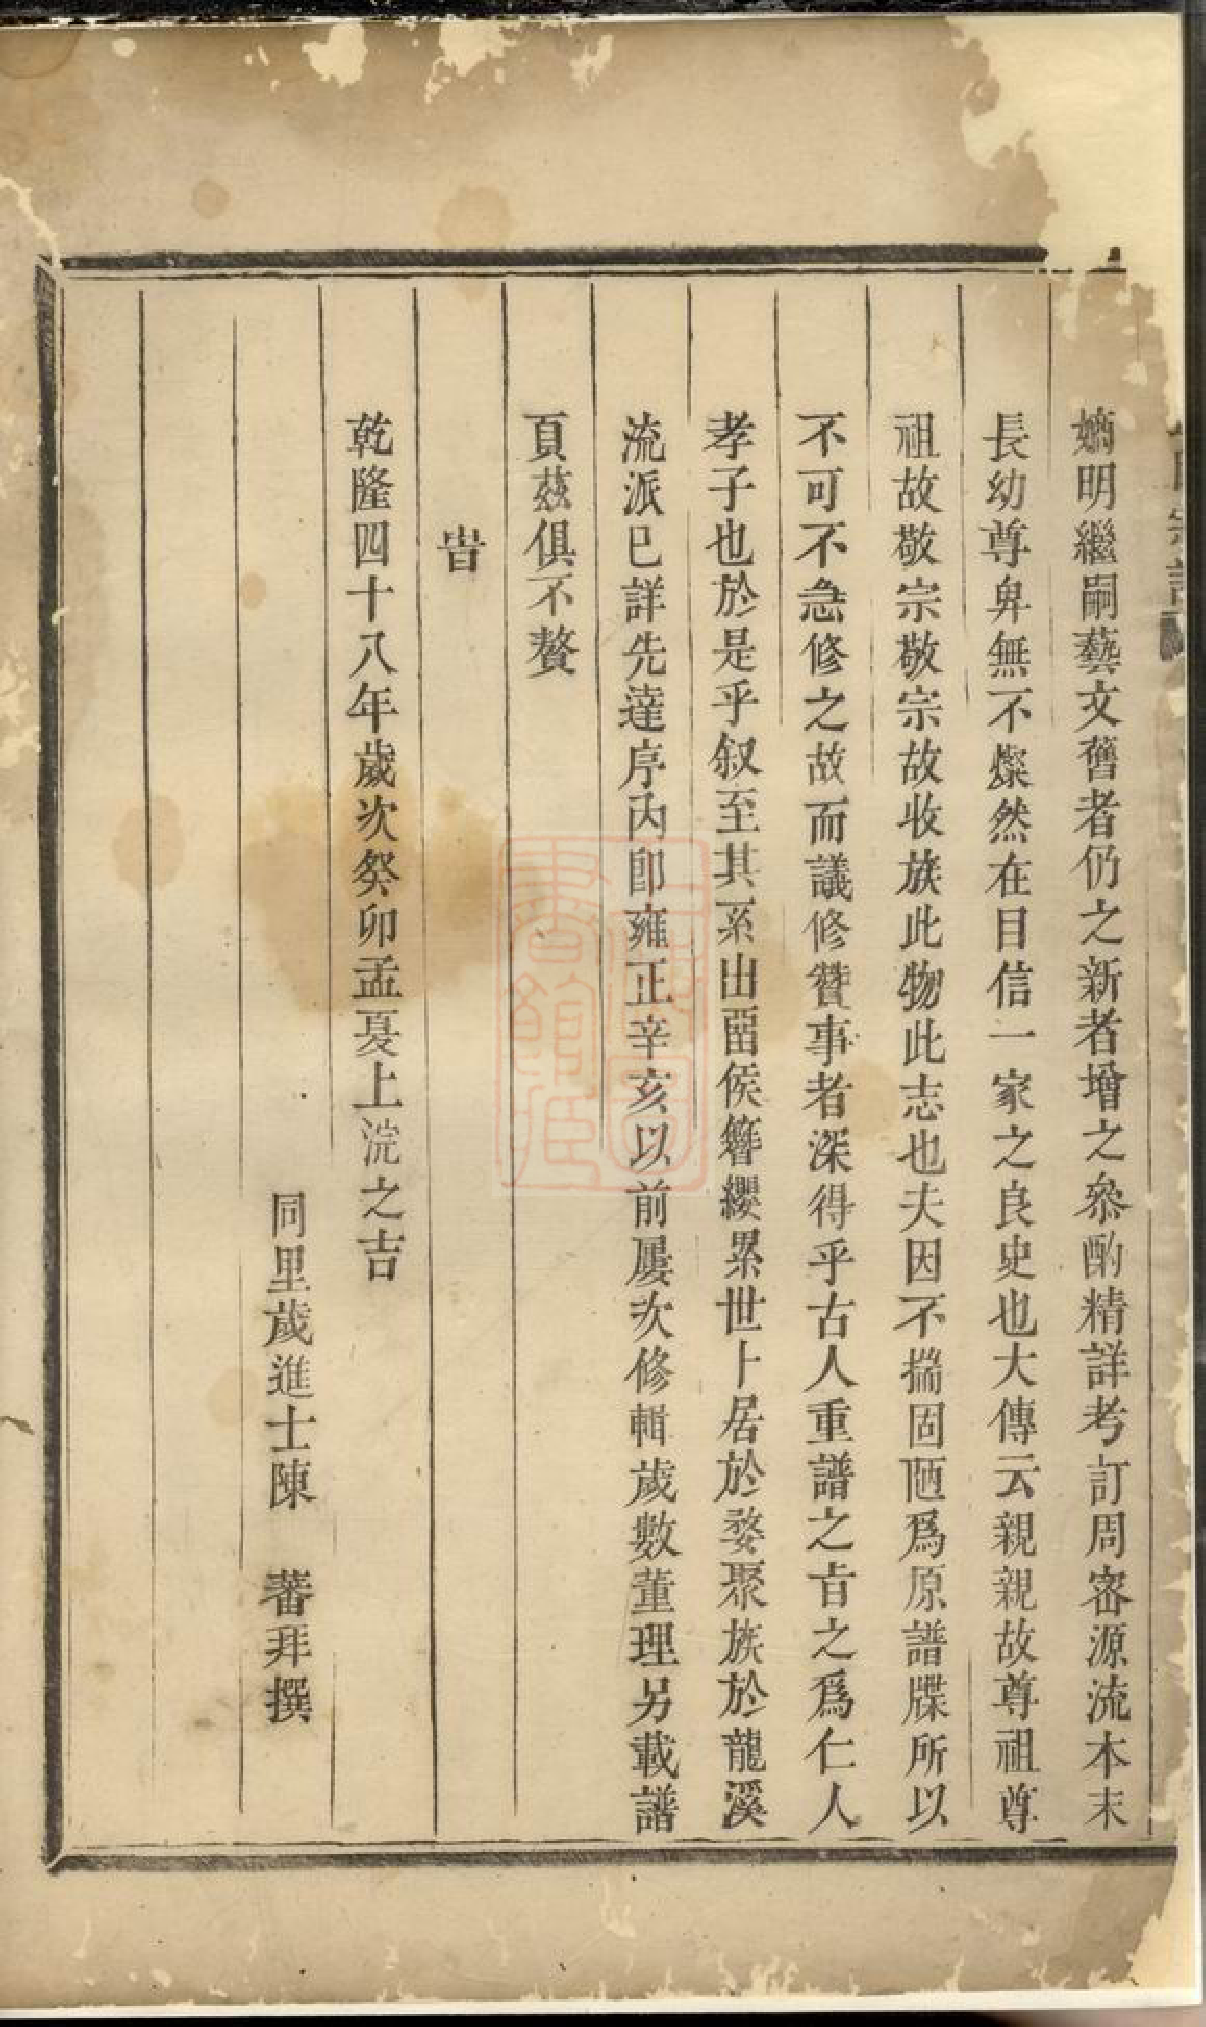 嫡明繼嗣藝文舊者仍之新者增之叅酌精詳考訂周密源流本末
長幼尊卑無不燦然在目信一家之良史也大傳云親親故尊祖尊
祖故敬宗敬宗故收族此物此志也夫因不揣固陋爲原譜牒所以
不可不急修之故而議修贊事者深得乎古人重譜之旨之爲仁人
孝子也於是乎叙至其系出畱侯簪纓累世卜居於婺聚族於龍溪
流派已詳先達序內卽雍正辛亥以前屢次修輯歲數董理另載譜
頁茲俱不贅
旹
乾隆四十八年歲次癸卯孟夏上浣之吉
同里歲進士陳　蕃拜撰